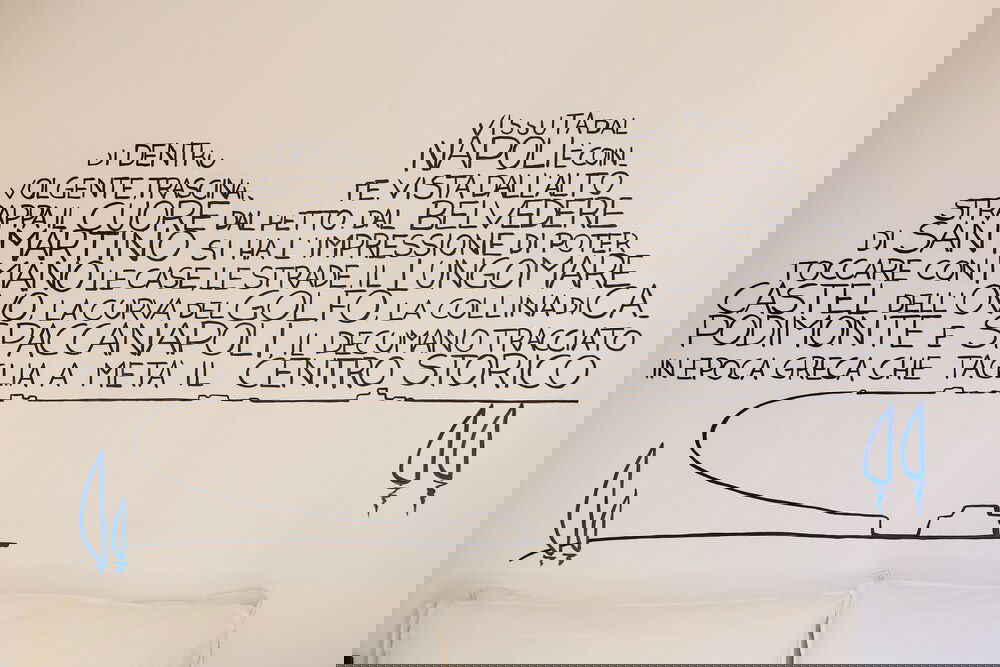 VISSUTA DAL
DI DENTRO, NAPOLI È COIN
VOLGENTE, TRASCINA, TE. VISTA DALL'ALTO
STRAPPA IL CUORE DAL PETTO. DAL BELVEDERE
DI SAN MARTINO SI HA L'IMPRESSIONE DI POTER
TOCCARE CON MANO LE CASE, LE STRADE, IL LUNGOMARE
CASTEL DELL'OVO, LA CURVA DEL GOLFO, LA COLLINA DI CA
PODIMONTE E SPACCANAPOLI, IL DECUMANO TRACCIATO
IN EPOCA GRECA CHE TAGLIA A META IL CENTRO STORICO